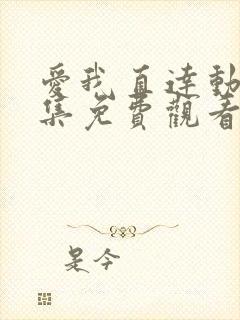 愛我直達動
集免費觀看
是今